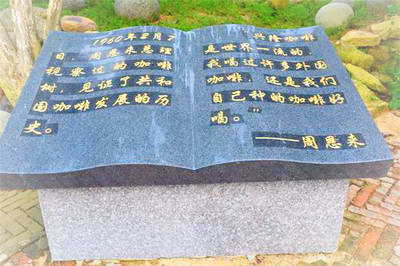 1960年2月7
日，周恩来总理
视察过的咖啡
树，见证了共和
国咖啡发展的历
史。
兴隆咖啡
是世界一流的
我喝过许多外国
咖啡，还是我们
自己种的咖啡好
喝。”
——周恩来